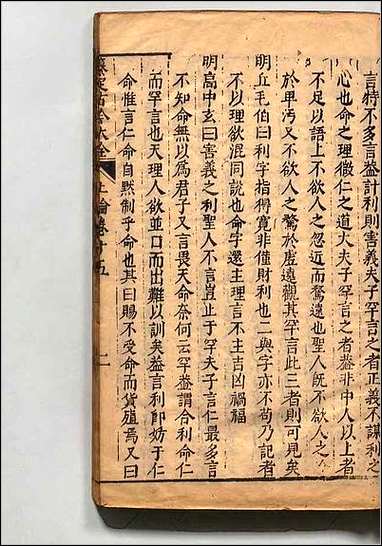 言特不多言益計利則害義夫子罕言之者正義不謀利之
心也命之理微仁之道大夫子罕言之者葢非中人以上者
不足以語上不欲人之忽近而騖遠也聖人既不欲人之入
於卑汚又不欲人之騖於虛遠觀其罕言此三者則可見矣
明丘毛伯曰利字指得寛非僅財利也二與字亦不苟乃記者
不以理欲混同說也命字還主理言不主吉凶禍福
明高中玄曰害義之利聖人不言豈止于罕夫子言仁最多言
不知命無以爲君子又言畏天命奈何云罕葢謂合利命仁
而罕言也天理人欲並口而出難以訓矣葢言利即妨于仁
命惟言仁命自然制乎命也其曰賜不受命而貨殖焉又曰
大全
上論卷十五
二